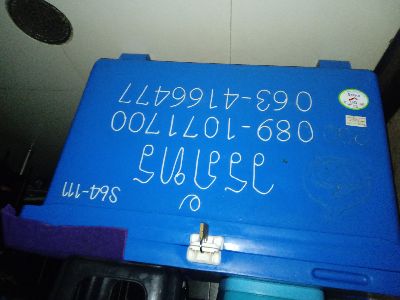 S64-111
วรภัทร
089-1071700
063-4166477